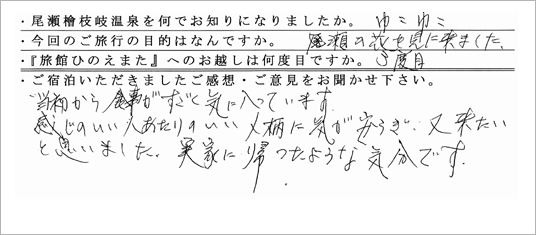 ・尾瀬檜枝岐温泉を何でお知りになりましたか。 ゆこゆこ
・今回のご旅行の目的はなんですか。 尾瀬の花を見に来ました。
・『旅館ひのえまた』へのお越しは何度目ですか。 5度目
・ご宿泊いただきましたご感想・ご意見をお聞かせ下さい。
当初から食事がすごく気に入っています。
感じのいい人あたりのいい人柄に気が安らぎ、又来たい
と思いました。実家に帰ったような気分です。